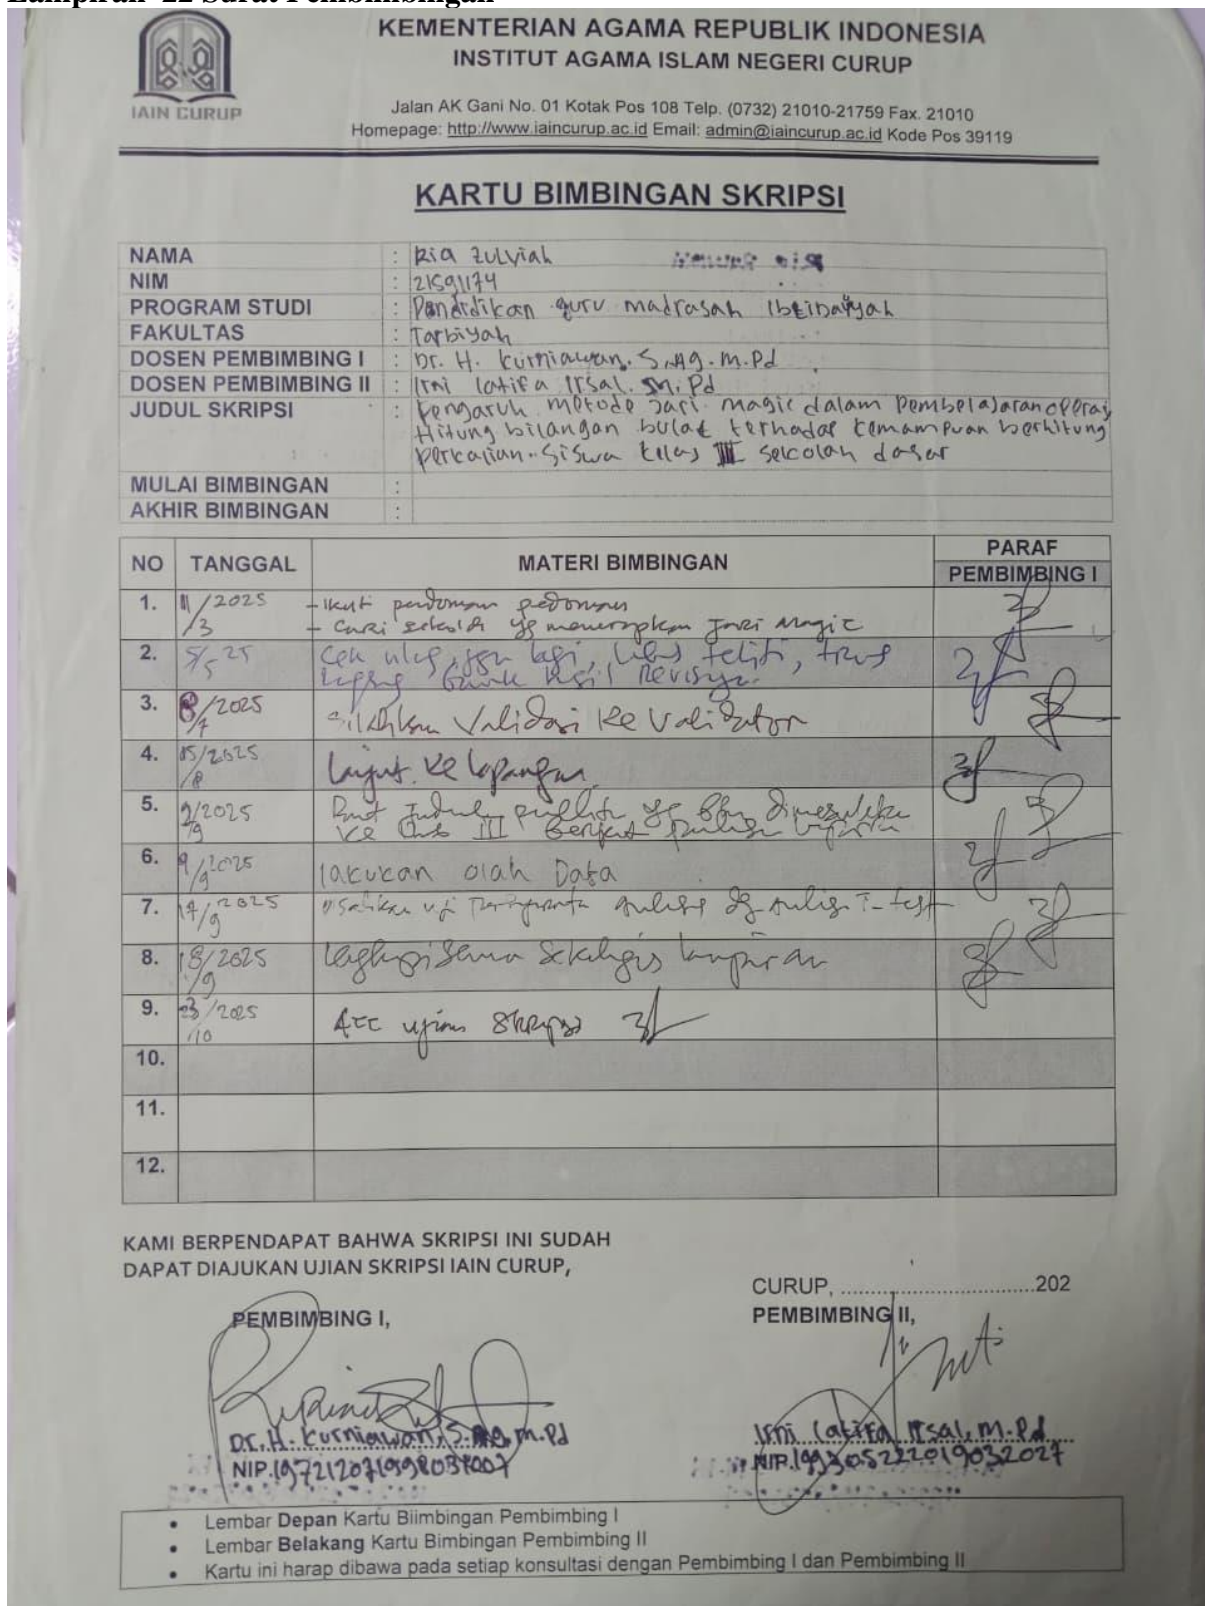 Lampiran 22 Surat Pembimbingan
KEMENTERIAN AGAMA REPUBLIK INDONESIA
INSTITUT AGAMA ISLAM NEGERI CURUP
IAIN CURUP
Jalan AK Gani No. 01 Kotak Pos 108 Telp. (0732) 21010-21759 Fax. 21010
Homepage: http://www.iaincurup.ac.id Email: admin@iaincurup.ac.id Kode Pos 39119
KARTU BIMBINGAN SKRIPSI
NAMA : Ria Zulviah
NIM : 21591174
PROGRAM STUDI : Pendidikan guru madrasah Ibtidaiyah
FAKULTAS : Tarbiyah
DOSEN PEMBIMBING I : Dr. H. Kurniawan, S.Ag. M.Pd
DOSEN PEMBIMBING II : Irni Latifa Irsal. M.Pd
JUDUL SKRIPSI : Pengaruh metode Jari magic dalam Pembelajaran operasi
Hitung bilangan bulat terhadap kemampuan berhitung
perkalian siswa kelas III sekolah dasar
MULAI BIMBINGAN :
AKHIR BIMBINGAN :
NO TANGGAL MATERI BIMBINGAN PARAF
PEMBIMBING I
1. 11/3 2025 - Ikuti pedoman
- Cari sekolah yg menerapkan Jari Magic
2. 5/5 25 Cek ulang lagi, teliti, trus
hasil Revisinya
3. 8/7 2025 Silahkan Validasi ke Validator
4. 05/8 2025 Lanjut ke lapangan
5. 2/9 2025 Judul
ke Bab III
6. 9/9 2025 lakukan olah Data
7. 17/9 2025 uji T-test
8. 18/9 2025 lengkapi semua sekaligus lampiran
9. 23/10 2025 Acc ujian Skripsi
10.
11.
12.
KAMI BERPENDAPAT BAHWA SKRIPSI INI SUDAH
DAPAT DIAJUKAN UJIAN SKRIPSI IAIN CURUP,
CURUP, ..................................202
PEMBIMBING I, PEMBIMBING II,
Dr. H. Kurniawan, S.Ag, M.Pd Irni Latifa Irsal, M.Pd
NIP.197212071998031007 NIP.199305222019032027
• Lembar Depan Kartu Biimbingan Pembimbing I
• Lembar Belakang Kartu Bimbingan Pembimbing II
• Kartu ini harap dibawa pada setiap konsultasi dengan Pembimbing I dan Pembimbing II